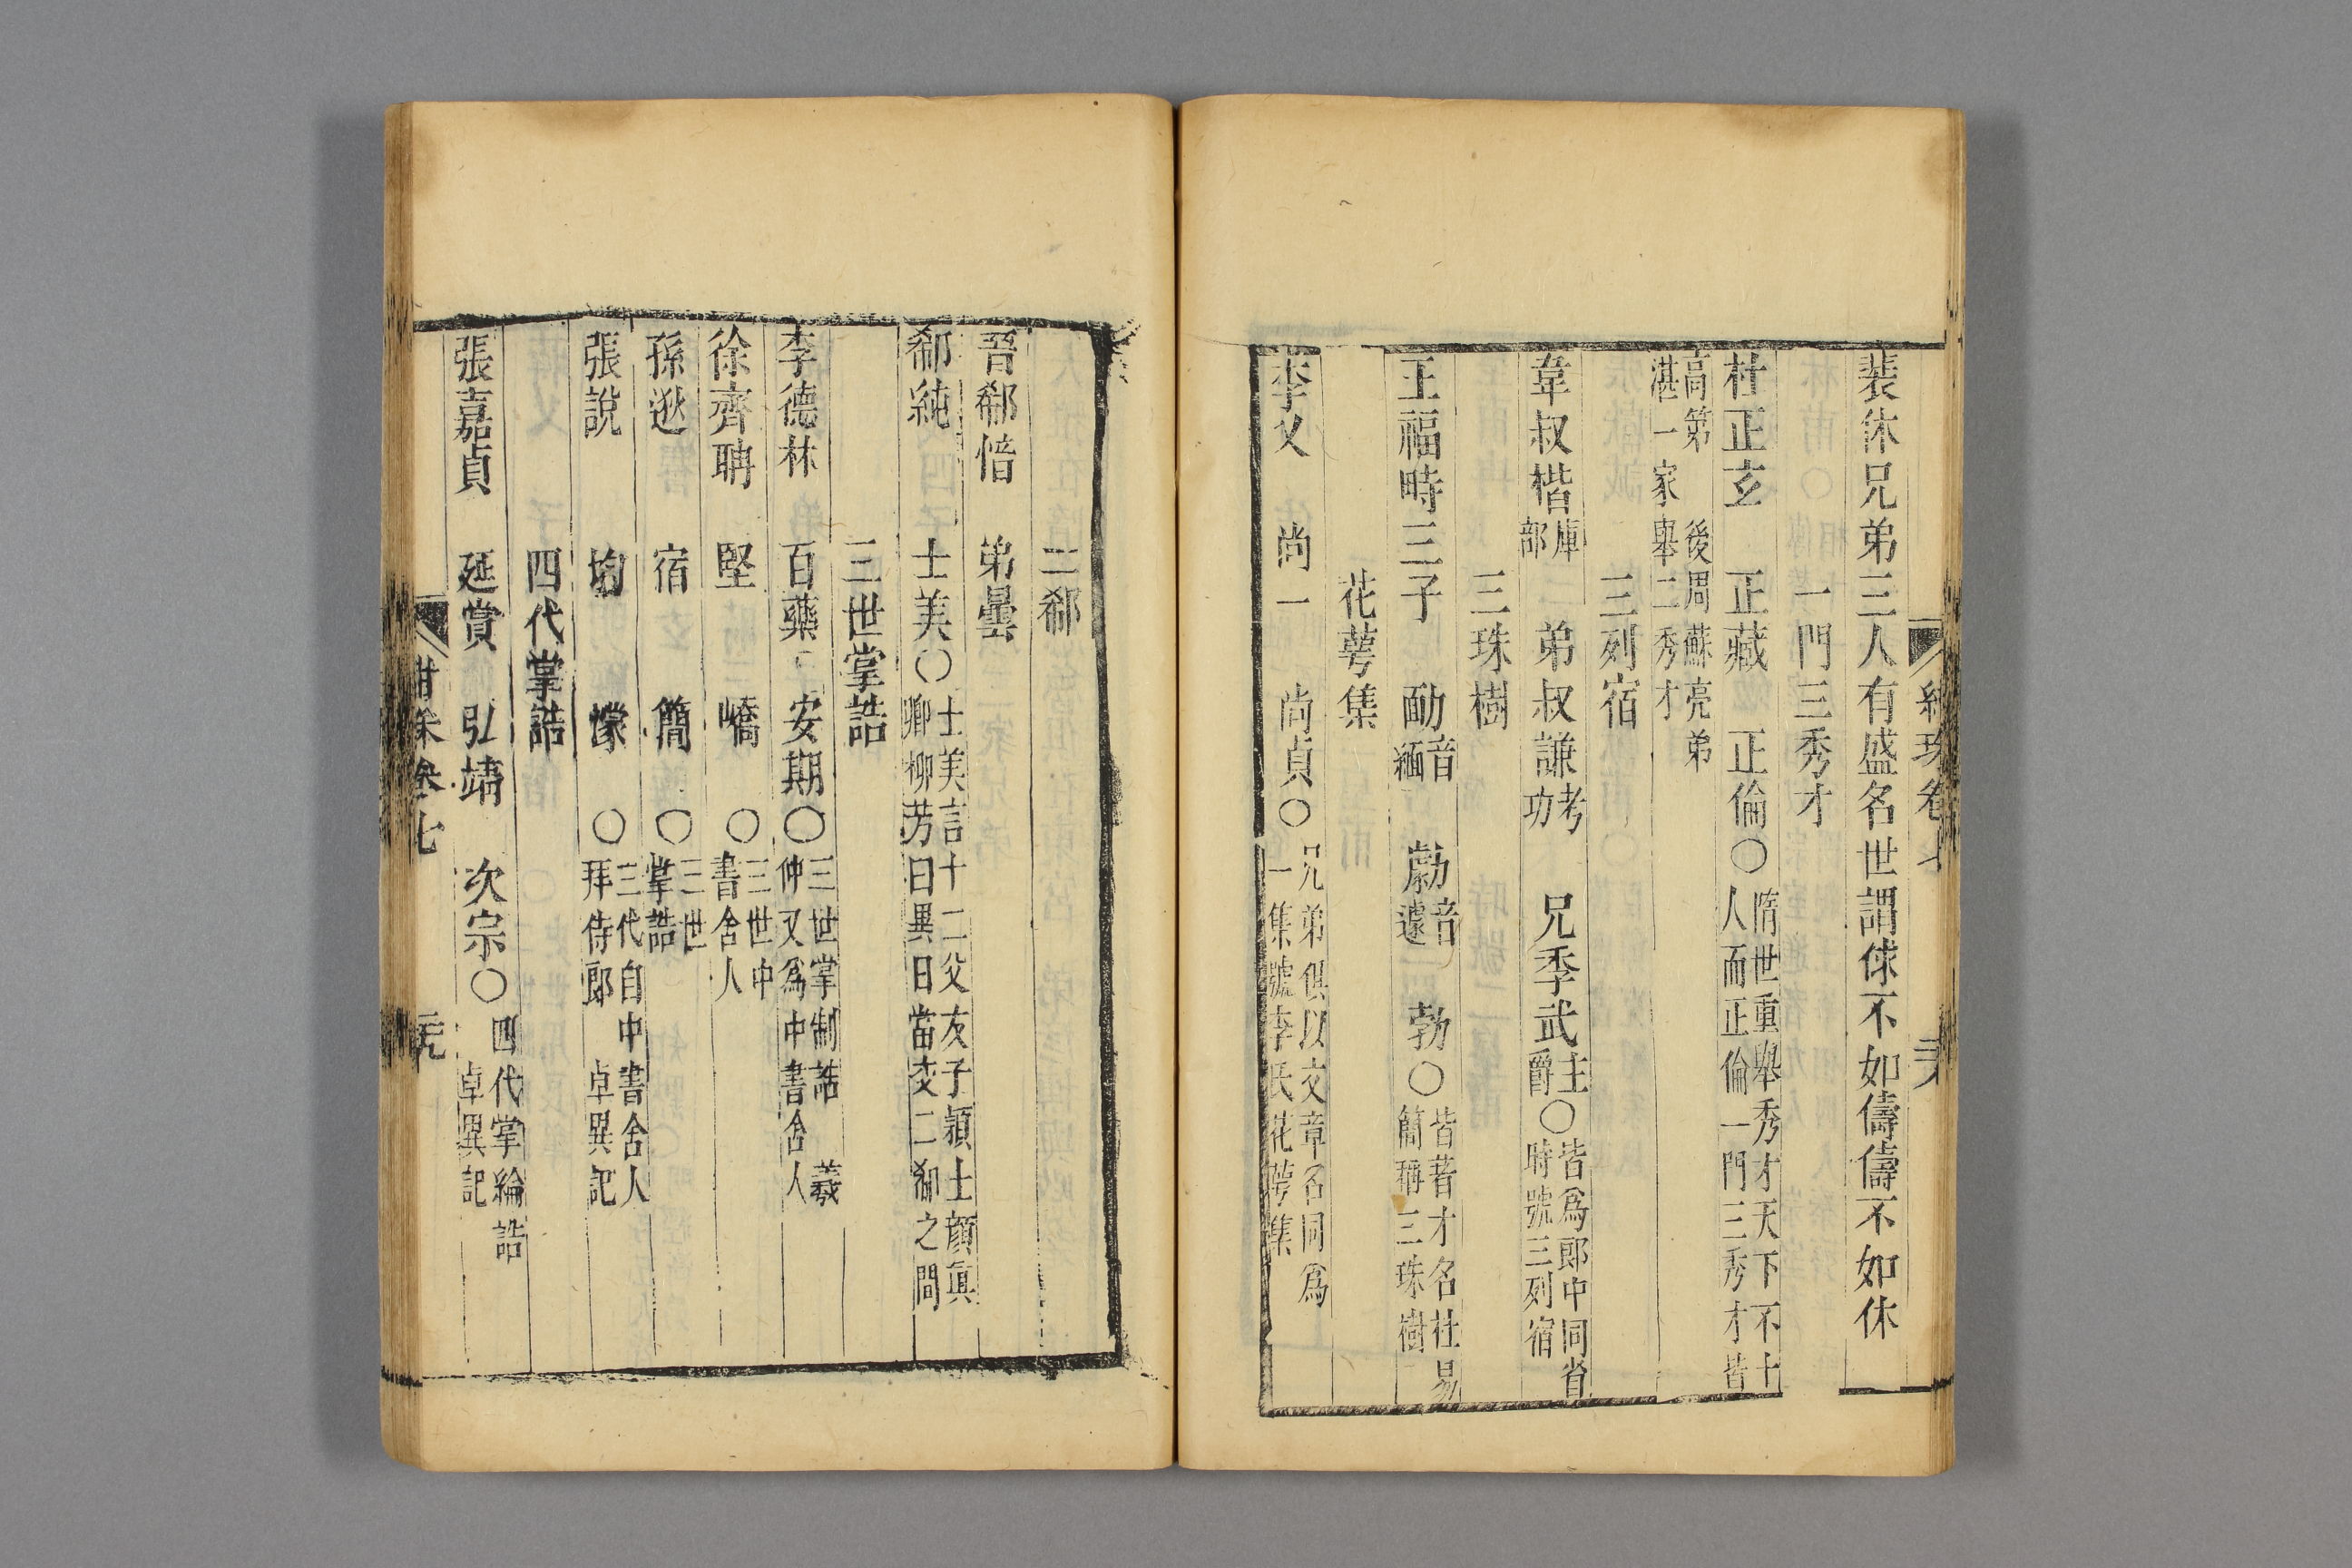 紺珠卷七
裴休兄弟三人有盛名世謂俅不如儔儔不如休
一門三秀才
杜正玄 正藏 正倫〇隋世重舉秀才天下不十
人而正倫一門三秀才皆
高第 後周蘇亮弟
湛一家舉二秀才
三列宿
韋叔楷庫部 弟叔謙考功 兄季武主爵〇皆爲郎中同省
時號三列宿
三珠樹
王福畤三子 勔音緬 勮音遽 勃〇皆著才名杜易
簡稱三珠樹
花萼集
李乂 尚一 尚貞〇兄弟俱以文章名同爲
一集號李氏花萼集
二郗
晉郗愔 弟曇
郗純 士美〇士美言十二父友子穎士顔眞
卿柳芳曰異日當交二郗之間
三世掌誥
李德林 百藥 安期〇三世掌制誥 羲
仲又爲中書舍人
徐齊聃 堅 嶠〇三世中
書舍人
孫逖 宿 簡〇三世
掌誥
張說 均 濛〇三代自中書舍人
拜侍郎 卓異記
四代掌誥
張嘉貞 延賞 弘靖 次宗〇四代掌綸誥
卓異記
紺朱卷七